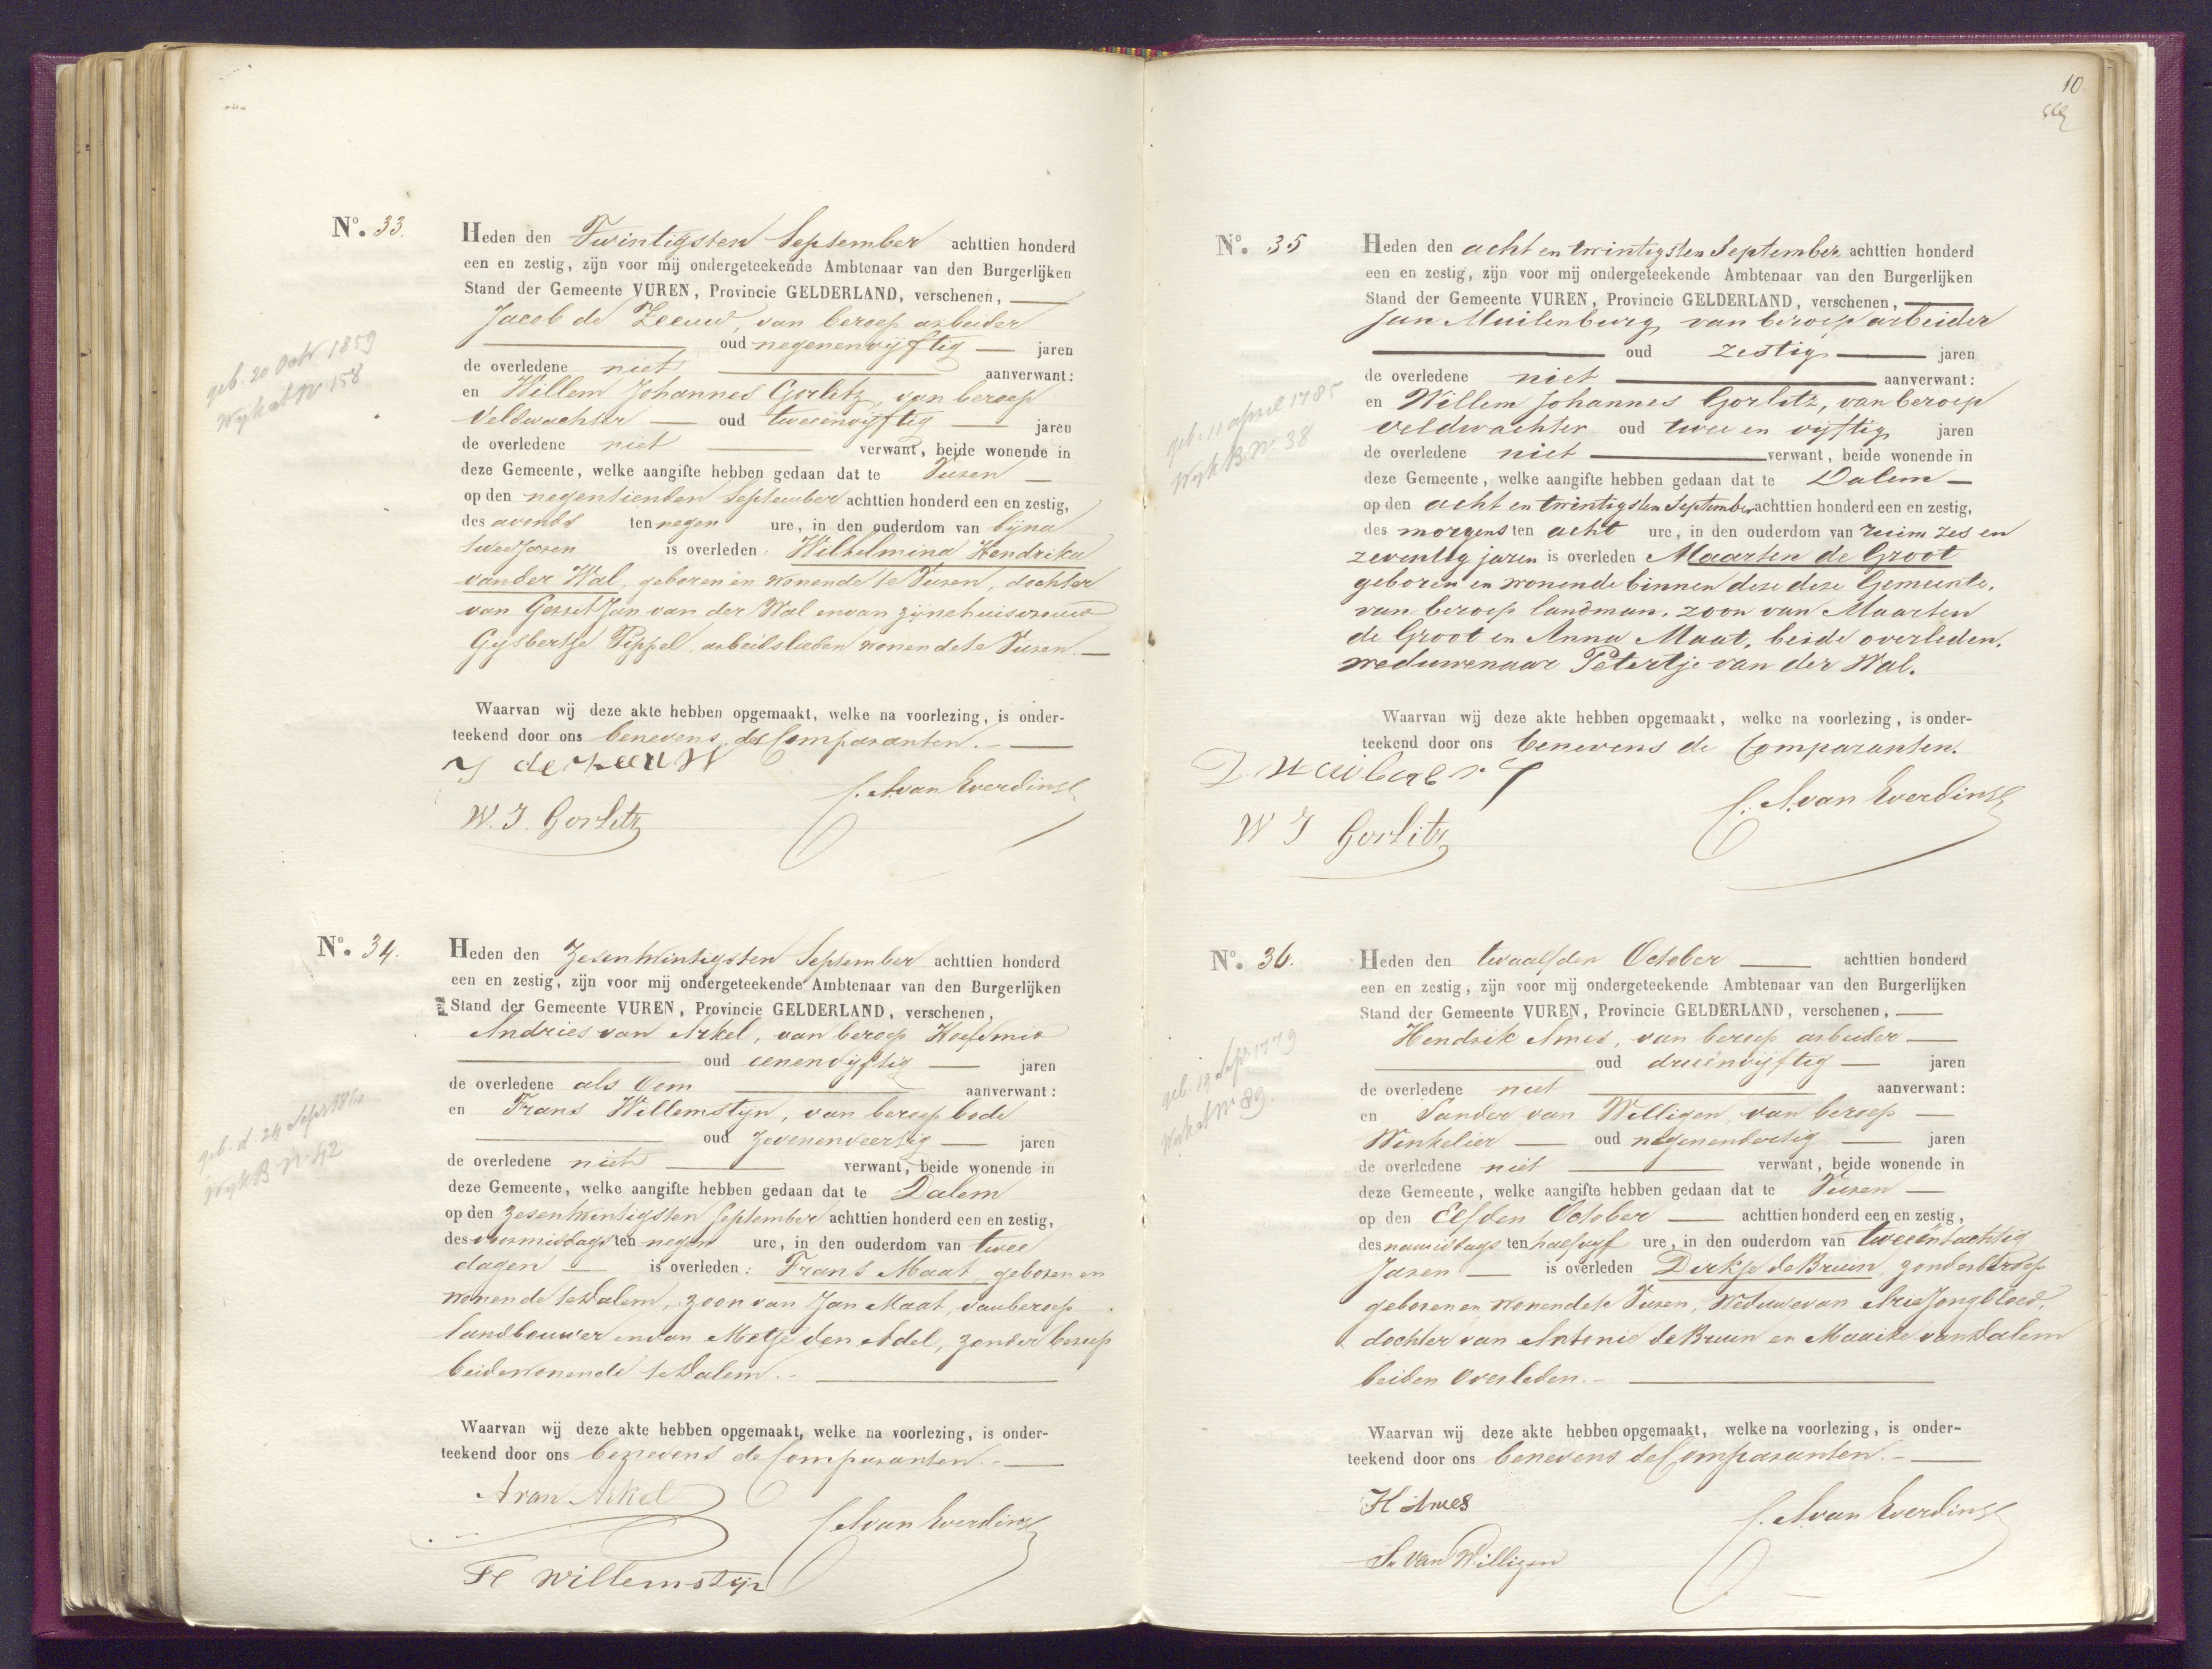 Nº. 33.
Heden den Twintigsten September achttien honderd
een en zestig, zijn voor mij ondergeteekende Ambtenaar van den Burgerlijken
Stand der Gemeente VUREN, Provincie GELDERLAND, verschenen,
Jacob de Zeeuw, van beroep arbeider
oud negenenvijftig jaren
de overledene niet aanverwant:
en Willem Johannes Gorlitz, van beroep
Veldwachter oud tweeenvijftig jaren
de overledene niet verwant, beide wonende in
deze Gemeente, welke aangifte hebben gedaan dat te Vuren
op den negentienden September achttien honderd een en zestig,
des avonds ten negen ure, in den ouderdom van bijna
twee jaren is overleden Wilhelmina Hendrika
van der Wal, geboren en wonende te Vuren, dochter
van Gerrit Jan van der Wal en van zijne huisvrouw
Gijsbertje Pippel arbeidslieden wonende te Vuren.
Waarvan wij deze akte hebben opgemaakt, welke na voorlezing, is onder-
teekend door ons benevens de Comparanten.
J de Zeeuw
C. A. van Everdingen
W. J. Gorlitz
geb. 20 Octr 1859
Wijk A Nº 158
Nº. 34.
Heden den Zesentwintigsten September achttien honderd
een en zestig, zijn voor mij ondergeteekende Ambtenaar van den Burgerlijken
Stand der Gemeente VUREN, Provincie GELDERLAND, verschenen,
Andries van Arkel, van beroep Hoefsmid
oud eenenvijftig jaren
de overledene als Oom aanverwant:
en Frans Willemstyn, van beroep bode
oud Zevenenveertig jaren
de overledene niet verwant, beide wonende in
deze Gemeente, welke aangifte hebben gedaan dat te Dalem
op den zesentwintigsten September achttien honderd een en zestig,
des voormiddags ten negen ure, in den ouderdom van twee
dagen is overleden: Frans Maat, geboren en
wonende te Dalem, zoon van Jan Maat, van beroep
landbouwer en van Metje den Adel, zonder beroep
beide wonende te Dalem.
Waarvan wij deze akte hebben opgemaakt, welke na voorlezing, is onder-
teekend door ons benevens de Comparanten.
A van Arkel
C. A. van Everdingen
F Willemstijn
geb. d. 24 Sept 1861
Wijk B Nº 42
10
Nº. 35
Heden den acht en twintigsten September achttien honderd
een en zestig, zijn voor mij ondergeteekende Ambtenaar van den Burgerlijken
Stand der Gemeente VUREN, Provincie GELDERLAND, verschenen,
Jan Muilenburg van beroep arbeider
oud zestig jaren
de overledene niet aanverwant:
en Willem Johannes Gorlitz, van beroep
veldwachter oud twee en vijftig jaren
de overledene niet verwant, beide wonende in
deze Gemeente, welke aangifte hebben gedaan dat te Dalem
op den acht en twintigsten September achttien honderd een en zestig,
des morgens ten acht ure, in den ouderdom van ruim zes en
zeventig jaren is overleden Maarten de Groot
geboren en wonende binnen deze deze Gemeente,
van beroep landman, zoon van Maarten
de Groot en Anna Maat, beide overleden,
weduwenaar Petertje van der Wal.
Waarvan wij deze akte hebben opgemaakt, welke na voorlezing, is onder-
teekend door ons benevens de Comparanten.
C. A. van Everdingen
W J Gorlitz
geb. 11 april 1785
Wijk B Nº 38
Nº. 36.
Heden den twaalfden October achttien honderd
een en zestig, zijn voor mij ondergeteekende Ambtenaar van den Burgerlijken
Stand der Gemeente VUREN, Provincie GELDERLAND, verschenen,
Hendrik Ames, van beroep arbeider
oud drieënvijftig jaren
de overledene niet aanverwant:
en Sander van Willigen, van beroep
Winkelier oud negenendertig jaren
de overledene niet verwant, beide wonende in
deze Gemeente, welke aangifte hebben gedaan dat te Vuren
op den Elfden October achttien honderd een en zestig,
des namiddags ten half vyf ure, in den ouderdom van tweeëntachtig
Jaren is overleden Dirkje de Bruin, zonder beroep
geboren en wonende te Vuren, Weduwe van Arie Jongbloed,
dochter van Antonie de Bruin en Maaike van Dalem
beiden overleden.
Waarvan wij deze akte hebben opgemaakt, welke na voorlezing, is onder-
teekend door ons benevens de Comparanten.
H Ames
C. A. van Everdingen
S. van Willigen
geb. 19 Sept 1779
Wijk A Nº 89.